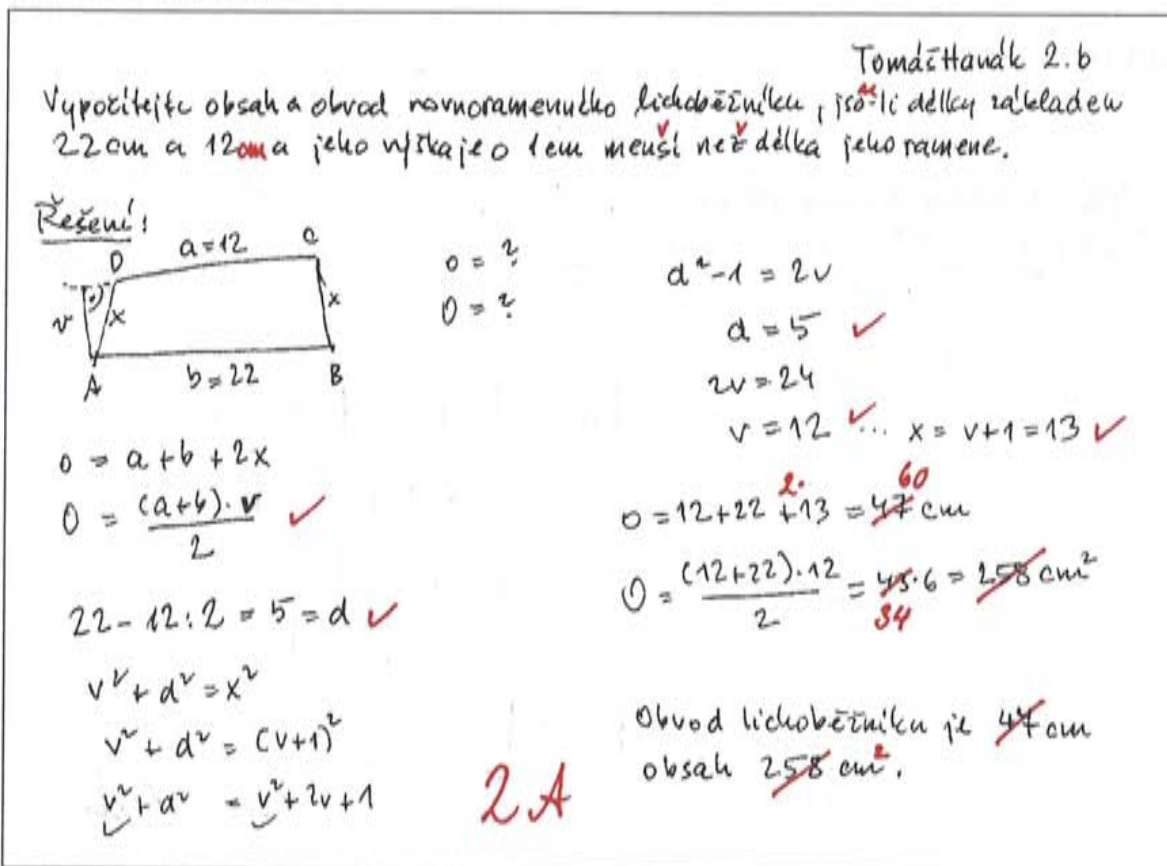 Tomáš Hanák 2.b
Vypočítejte obsah a obvod rovnoramenného lichoběžníku, jsou-li délky základen
22cm a 12cm a jeho výška je o 1cm menší než délka jeho ramene.
Řešení:
a=12
D
C
v
x
x
A
b=22
B
o = ?
O = ?
o = a+b+2x
O = (a+b)·v / 2 ✓
22-12:2 = 5 = d ✓
v²+d² = x²
v²+d² = (v+1)²
v²+d² = v²+2v+1
d²-1 = 2v
d = 5 ✓
2v=24
v=12 ✓ ... x = v+1 = 13 ✓
2· 60
o = 12+22+13 = 47 cm
O = (12+22)·12 / 2 = 45·6 = 258 cm²
34
Obvod lichoběžníku je 47 cm
obsah 258 cm².
2A